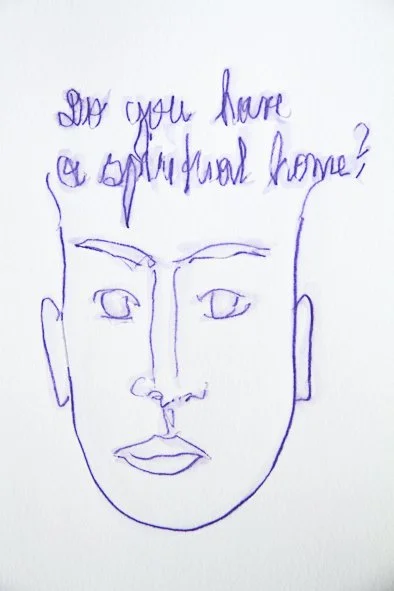 Do you have
a spiritual home?